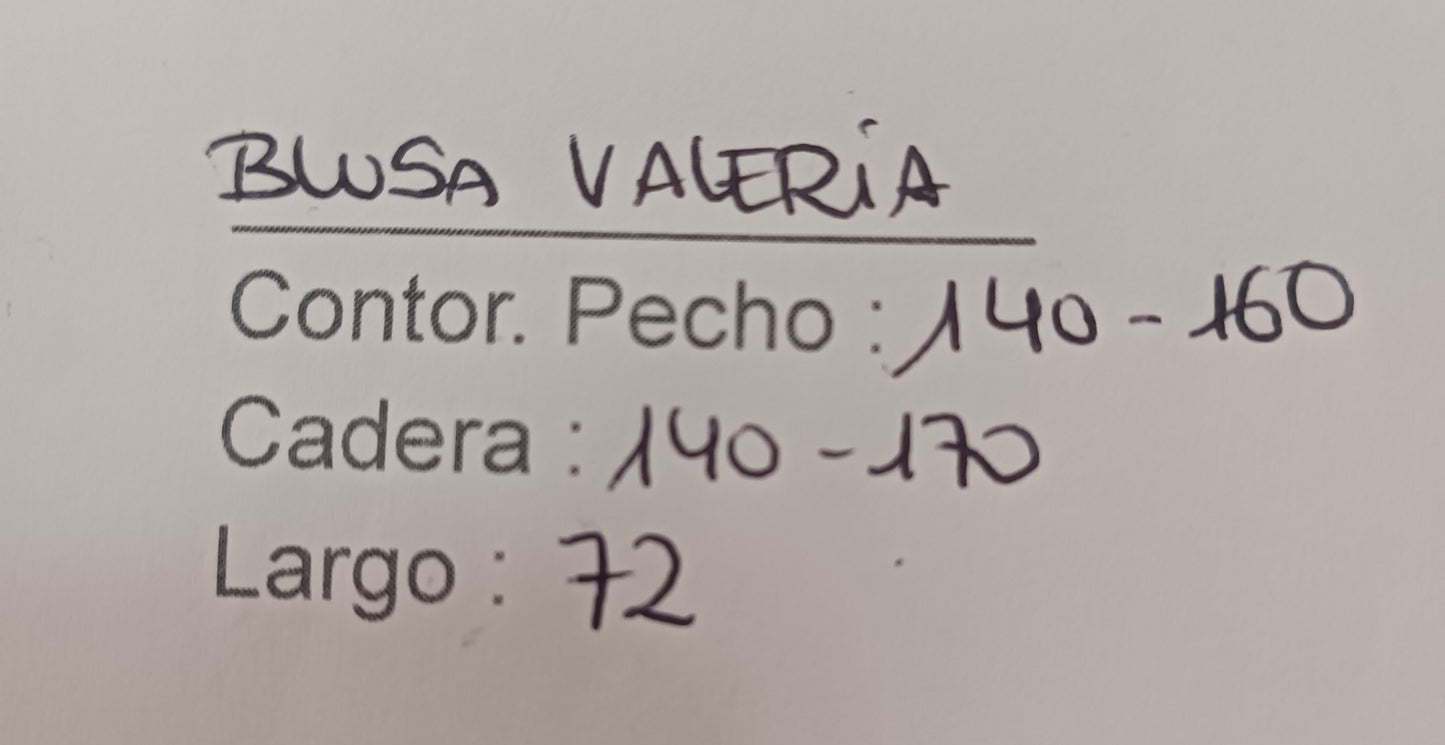 BLUSA VALERiA
Contor. Pecho : 140 - 160
Cadera : 140 - 170
Largo : 72